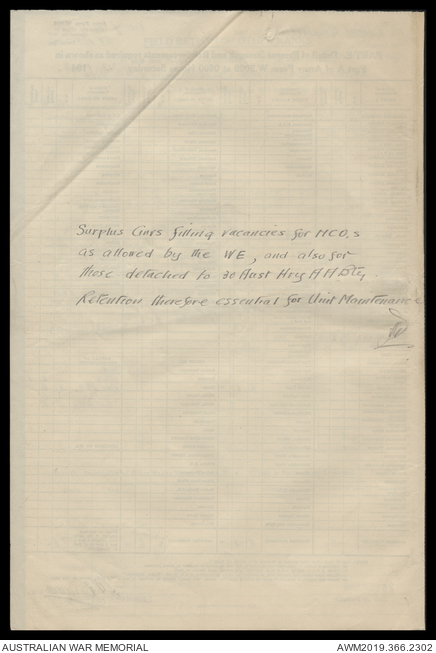 Surplus Gnrs filling vacancies for NCO,s
as allowed by the WE, and also for
those detached to 30 Aust Hvy A A Bty.
Retention therefore essential for Unit Maintenance
AUSTRALIAN WAR MEMORIAL
AWM2019.366.2302